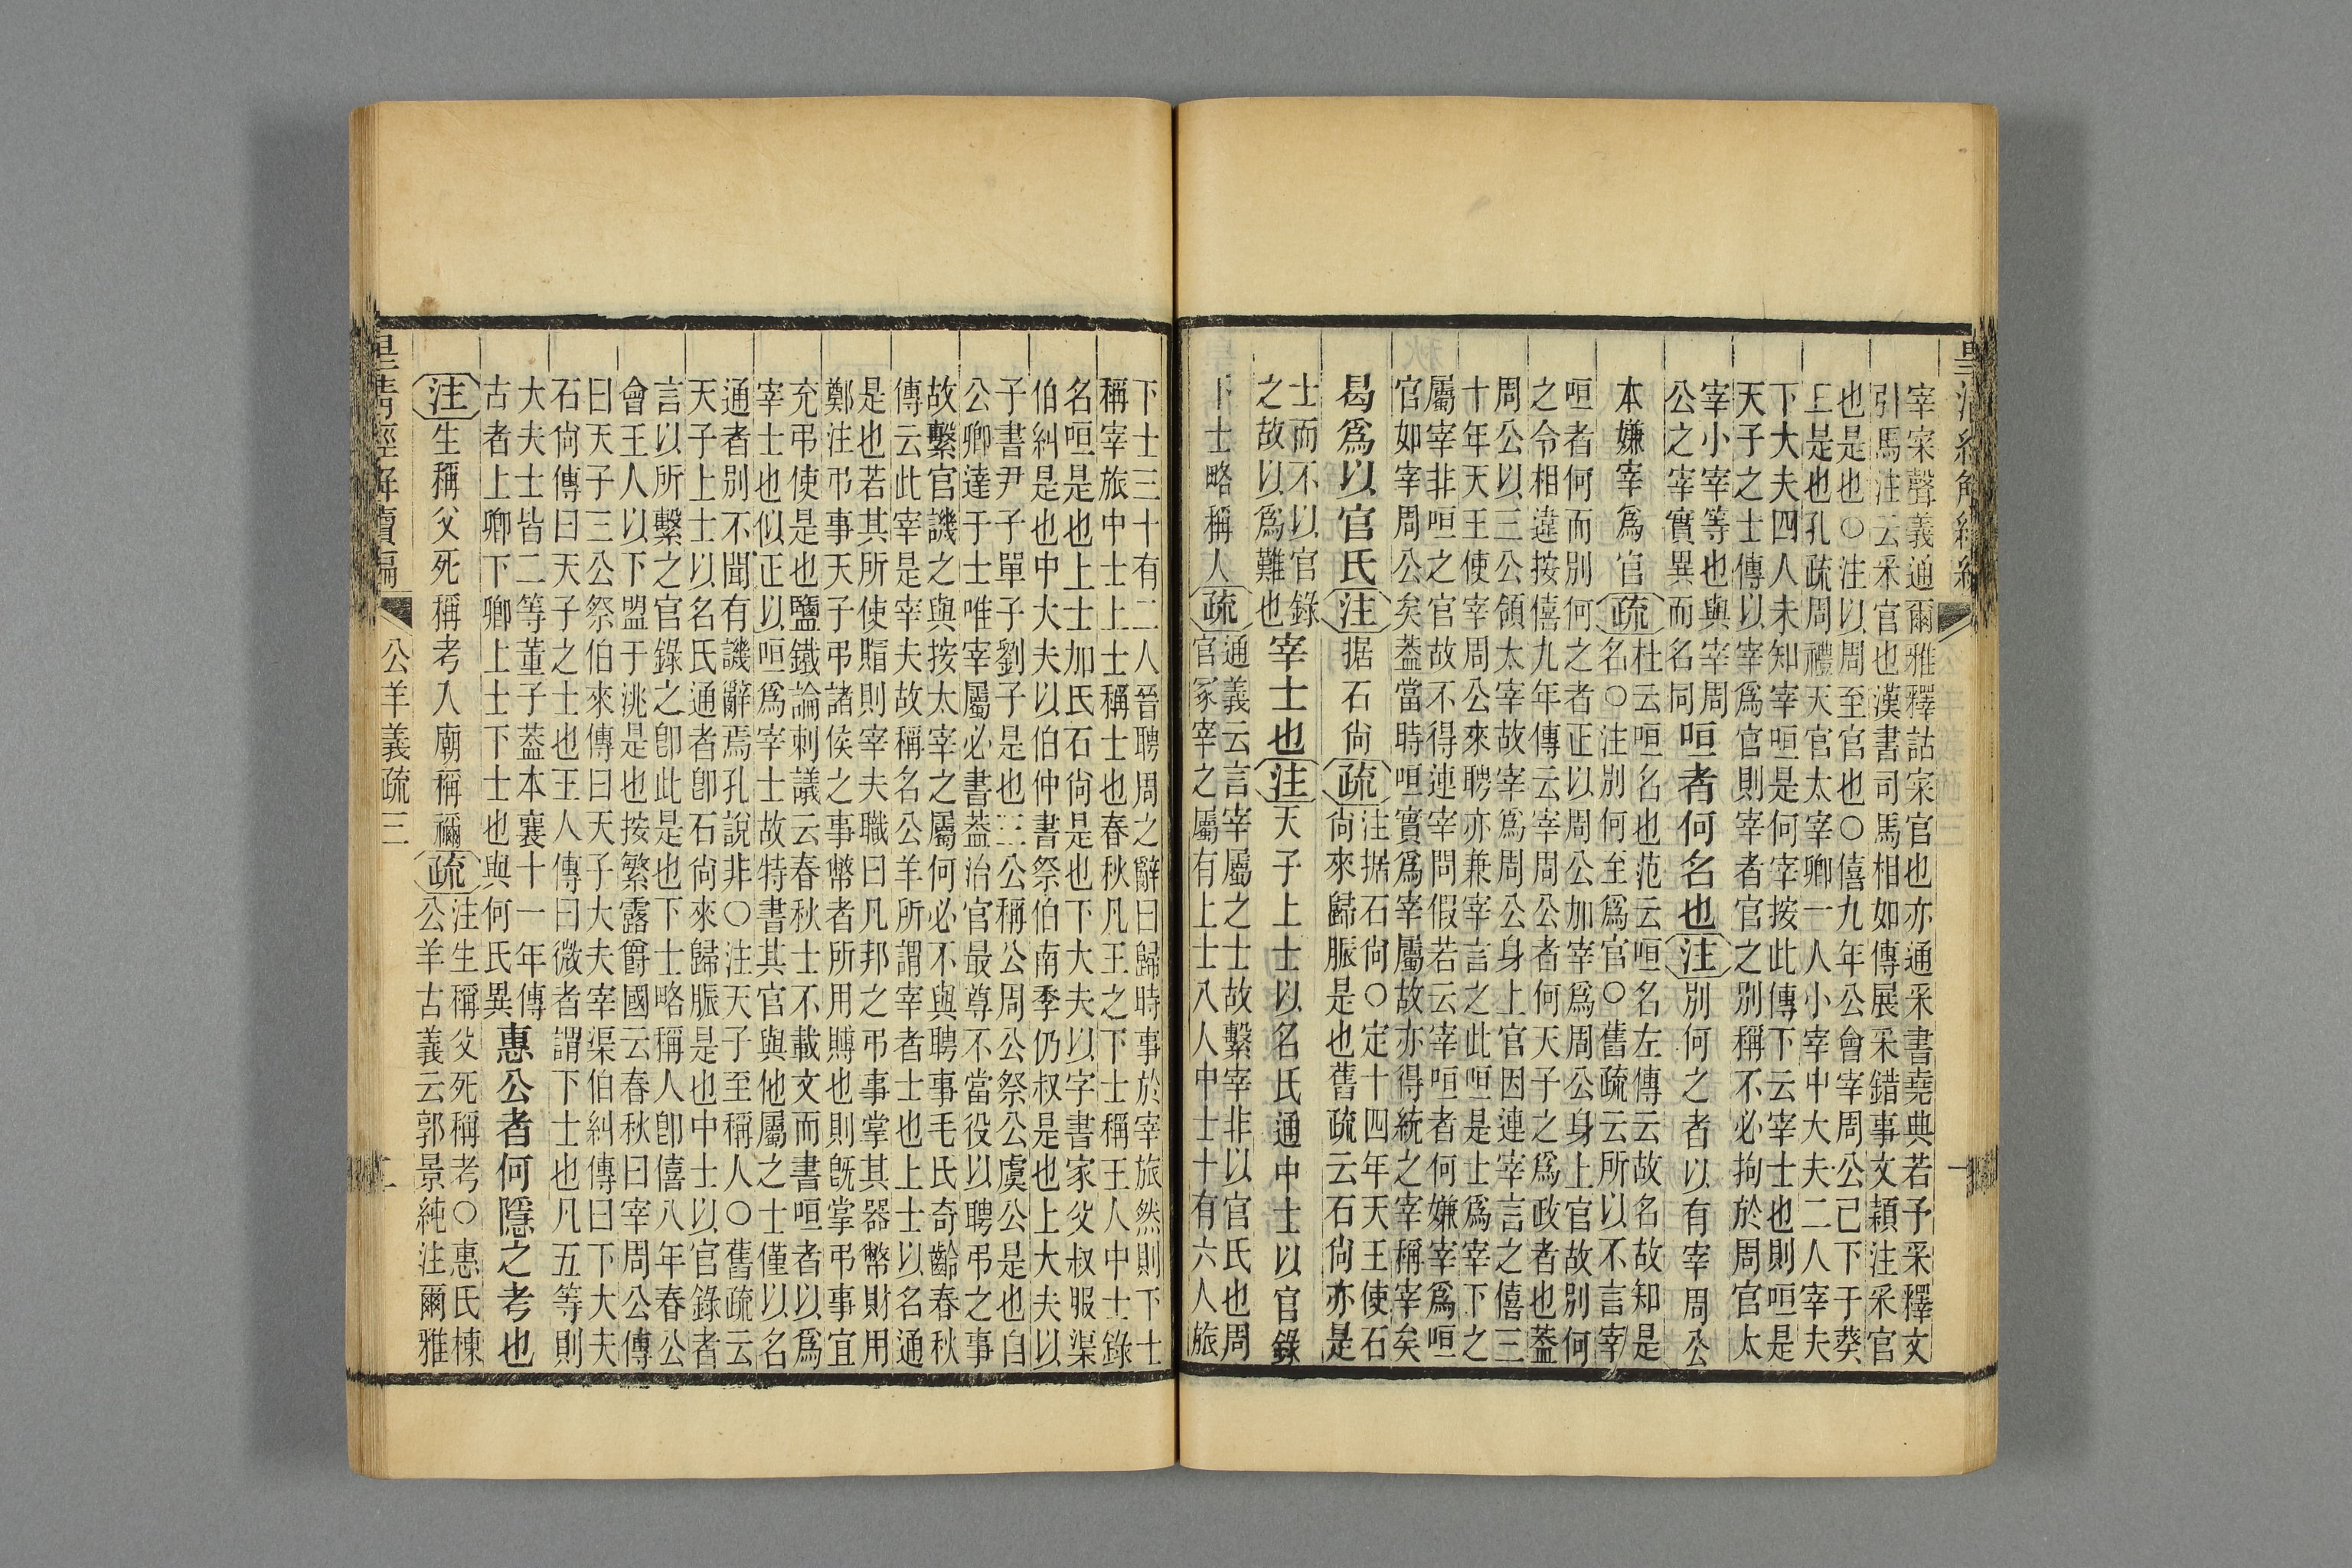 宰宷聲義通爾雅釋詁宷官也亦通采書堯典若予采釋文
引馬注云采官也漢書司馬相如傳展采錯事文穎注采官
也是也○注以周至官也○僖九年公會宰周公已下于葵
丘是也孔疏周禮天官太宰卿一人小宰中大夫二人宰夫
下大夫四人未知宰咺是何宰按此傳下云宰士也則咺是
天子之士傳以宰爲官則宰者官之別稱不必拘於周官太
宰小宰等也與宰周
公之宰實異而名同
咺者何名也注別何之者以有宰周公
本嫌宰爲官疏杜云咺名也范云咺名左傳云故名故知是
名○注別何至爲官○舊疏云所以不言宰
咺者何而別何之者正以周公加宰爲周公身上官故別何
之令相違按僖九年傳云宰周公者何天子之爲政者也蓋
周公以三公領太宰故宰爲周公身上官因連宰言之僖三
十年天王使宰周公來聘亦兼宰言之此咺是士爲宰下之
屬宰非咺之官故不得連宰問假若云宰咺者何嫌宰爲咺
官如宰周公矣蓋當時咺實爲宰屬故亦得統之宰稱宰矣
曷爲以官氏注据石尙疏注据石尙○定十四年天王使石
尙來歸脤是也舊疏云石尙亦是
士而不以官錄
之故以爲難也
宰士也注天子上士以名氏通中士以官錄
下士略稱人疏通義云言宰屬之士故繫宰非以官氏也周
官冢宰之屬有上士八人中士十有六人旅
下士三十有二人晉聘周之辭曰歸時事於宰旅然則下士
稱宰旅中士上士稱士也春秋凡王之下士稱王人中士錄
名咺是也上士加氏石尙是也下大夫以字書家父叔服渠
伯糾是也中大夫以伯仲書祭伯南季仍叔是也上大夫以
子書尹子單子劉子是也三公稱公周公祭公虞公是也自
公卿達于士唯宰屬必書蓋治官最尊不當役以聘弔之事
故繫官譏之與按太宰之屬何必不與聘事毛氏奇齡春秋
傳云此宰是宰夫故稱名公羊所謂宰者士也上士以名通
是也若其所使賵則宰夫職曰凡邦之弔事掌其器幣財用
鄭注弔事天子弔諸侯之事幣者所用賻也則旣掌弔事宜
充弔使是也鹽鐵論刺議云春秋士不載文而書咺者以爲
宰士也似正以咺爲宰士故特書其官與他屬之士僅以名
通者別不聞有譏辭焉孔說非○注天子至稱人○舊疏云
天子上士以名氏通者卽石尙來歸脤是也中士以官錄者
言以所繫之官錄之卽此是也下士略稱人卽僖八年春公
會王人以下盟于洮是也按繁露爵國云春秋曰宰周公傳
曰天子三公祭伯來傳曰天子大夫宰渠伯糾傳曰下大夫
石尙傳曰天子之士也王人傳曰微者謂下士也凡五等則
大夫士皆二等董子蓋本襄十一年傳
古者上卿下卿上士下士也與何氏異
惠公者何隱之考也
注生稱父死稱考入廟稱禰疏注生稱父死稱考○惠氏棟
公羊古義云郭景純注爾雅
皇清經解續編
公羊義疏三